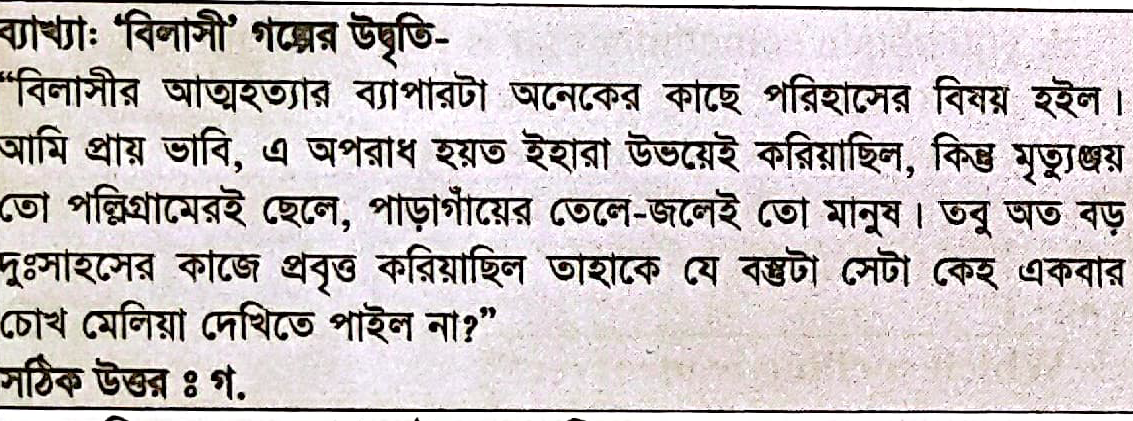 ব্যাখ্যাঃ ‘বিলাসী’ গল্পের উদ্বৃতি-
“বিলাসীর আত্মহত্যার ব্যাপারটা অনেকের কাছে পরিহাসের বিষয় হইল।
আমি প্রায় ভাবি, এ অপরাধ হয়ত ইহারা উভয়েই করিয়াছিল, কিন্তু মৃত্যুঞ্জয়
তো পল্লিগ্রামেরই ছেলে, পাড়াগাঁয়ের তেলে-জলেই তো মানুষ। তবু অত বড়
দুঃসাহসের কাজে প্রবৃত্ত করিয়াছিল তাহাকে যে বস্তুটা সেটা কেহ একবার
চোখ মেলিয়া দেখিতে পাইল না?”
সঠিক উত্তর ঃ গ.